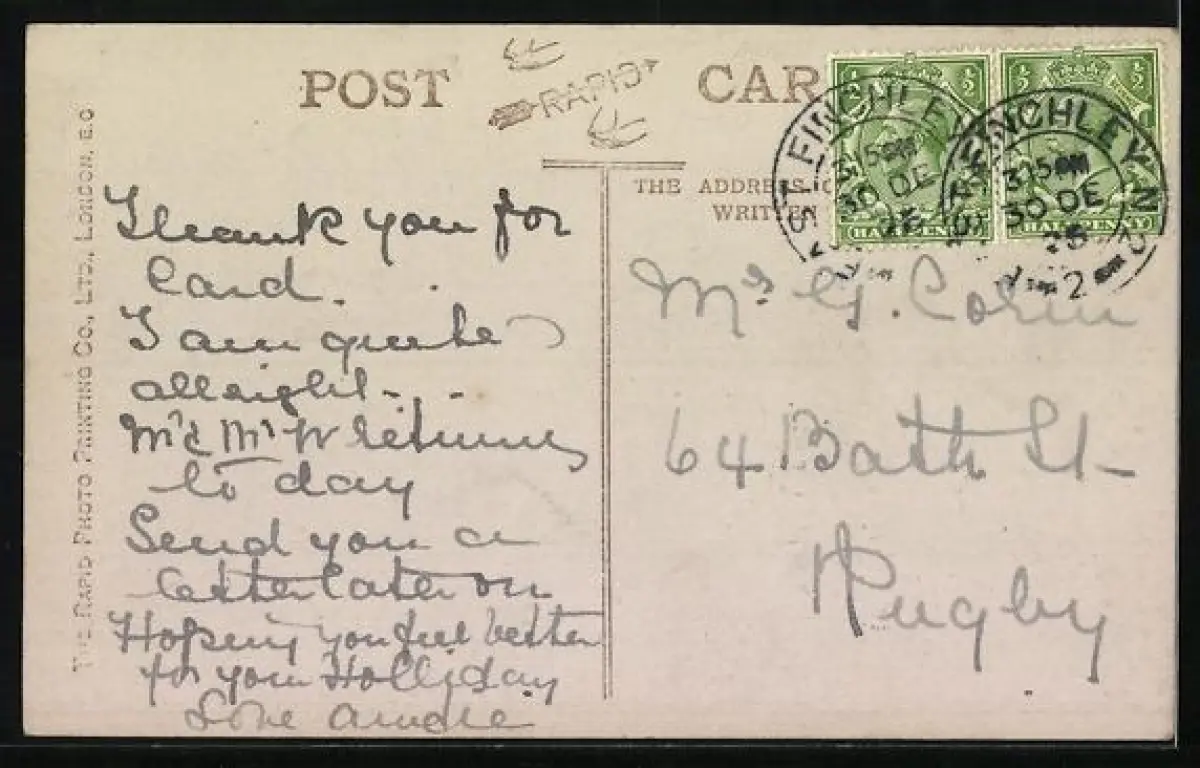 POST CARD
RAPID
THE ADDRESS
WRITTEN
THE RAPID PHOTO PRINTING CO., LTD., LONDON, E.C
½ ½
HALFPENNY
½ ½
HALFPENNY
FINCHLEY
3 15 PM
30 DE
25
FINCHLEY N
3 15 PM
30 DE
25
2
Thank you for
Card.
I am quite
allright -
Mr & Mrs W returning
to day
Send you a
letter later on
Hopeing you feel better
for your Holliday
Love
Mrs G.
64 Bath St
Rugby